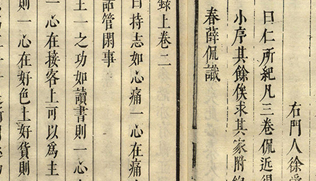 右門人徐
曰仁所紀凡三卷侃近得
小序其餘俟求其家附
春薛侃識
錄上卷二
曰持志如心痛一心在痛
話管閒事
主一之功如讀書則一心
一心在接客上可以為主
則一心在好色上好貨則